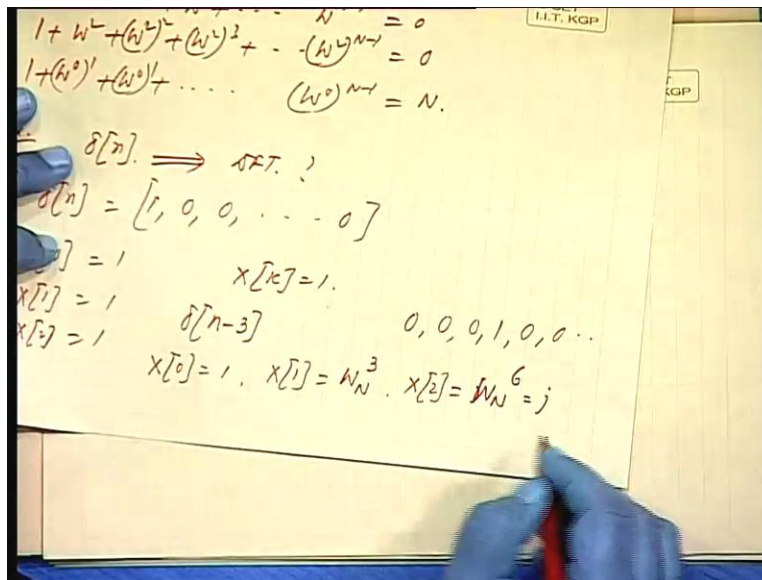 I.I.T. KGP
KGP
= 0
1 + W² + (W²)² + (W²)³ + · · (W²)^{N-1} = 0
1 + (W⁰)¹ + (W⁰)¹ + . . . . (W⁰)^{N-1} = N.
δ[n]. ⟹ DFT. ?
δ[n] = [1, 0, 0, . . . . 0]
] = 1
X[k] = 1.
X[1] = 1
X[2] = 1
δ[n-3] 0, 0, 0, 1, 0, 0 ..
X[0] = 1. X[1] = W_N^3. X[2] = W_N^6 = j